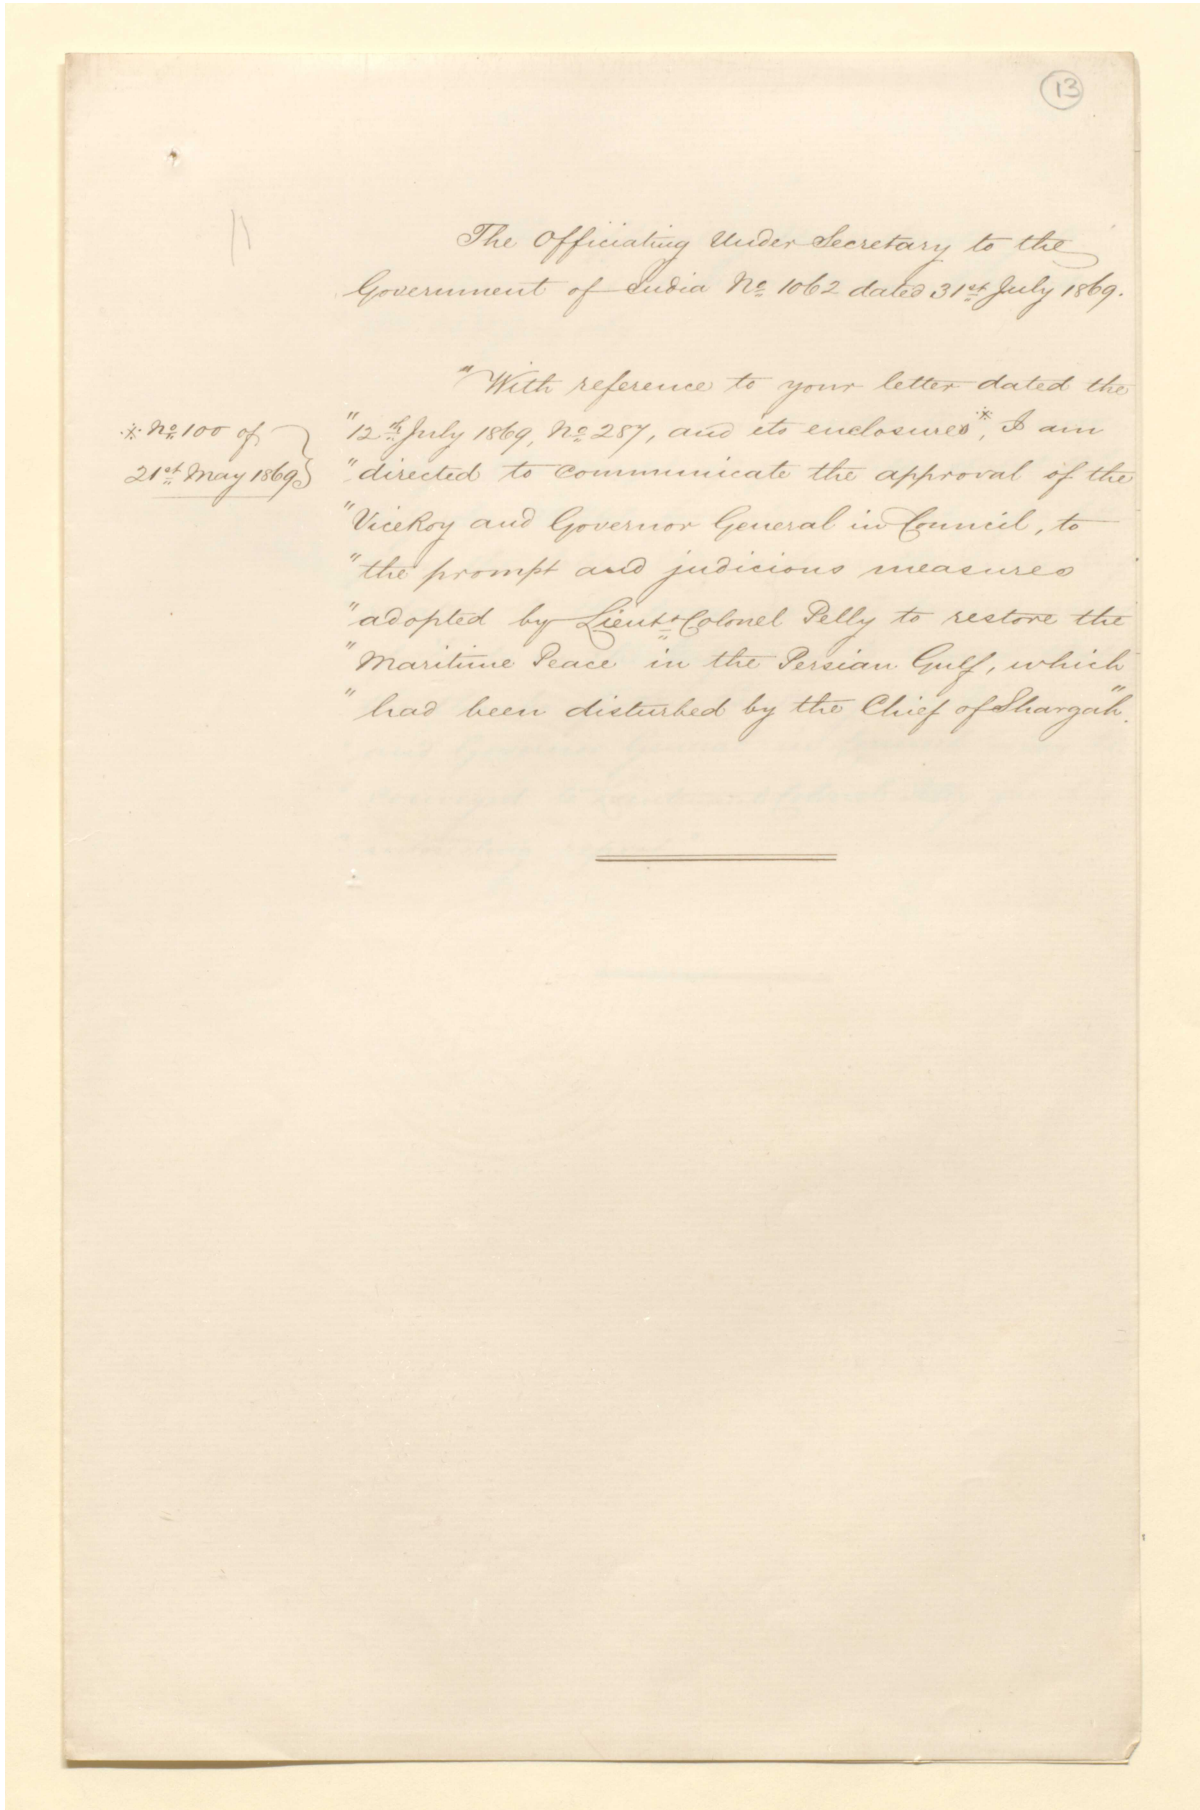 13
The Officiating Under Secretary to the
Government of India No 1062 dated 31st July 1869.
"With reference to your letter dated the
※ No 100 of
21st May 1869
"12th July 1869, No 287, and its enclosures※, I am
"directed to communicate the approval of the
"ViceRoy and Governor General in Council, to
"the prompt and judicious measures
"adopted by Lieut Colonel Pelly to restore the
"Maritime Peace in the Persian Gulf, which
"had been disturbed by the Chief of Shargah."